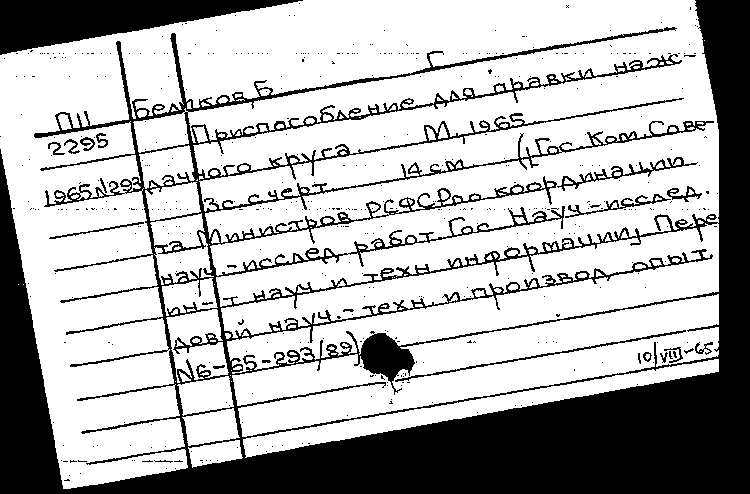 Беликов, Б Г
ПII
2295
Приспособление для правки наж-
1965 N293 дачного круга. М., 1965
3с. с черт. 14 см ([Гос. Ком. Сове-
та Министров РСФСР по координации
науч.-исслед работ. Гос Науч-исслед.
ин-т науч и техн информации] Пере
довой науч.-техн. и производ опыт
N6-65-293/89)
10/VIII-65